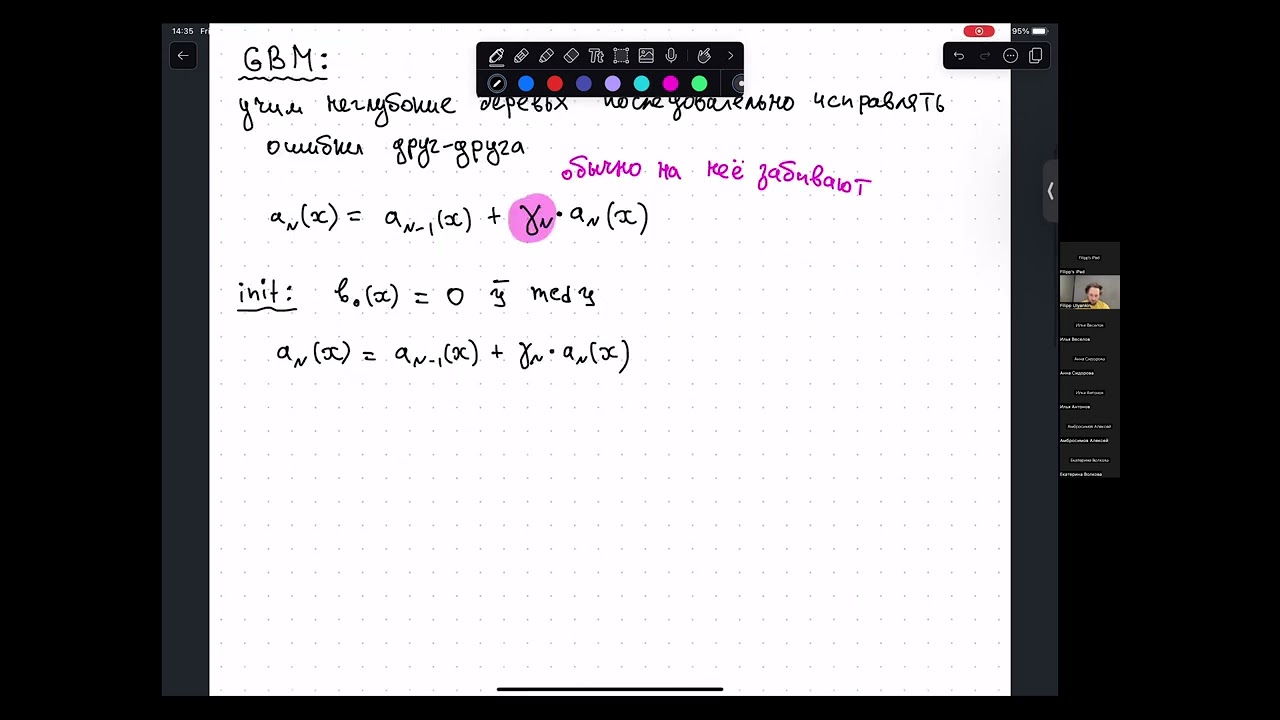 14:35 Fri
95%
GBM:
учим неглубокие деревья последовательно исправлять
ошибки друг-друга
обычно на неё забивают
a_N(x) = a_{N-1}(x) + γ_N · a_N(x)
init: b_0(x) = 0 ȳ med y
a_N(x) = a_{N-1}(x) + γ_N · a_N(x)
Filipp's iPad
Filipp's iPad
Filipp Ulyankin
Илья Веселов
Илья Веселов
Анна Сидорова
Анна Сидорова
Илья Антонов
Илья Антонов
Амбросимов Алексей
Амбросимов Алексей
Екатерина Волкова
Екатерина Волкова